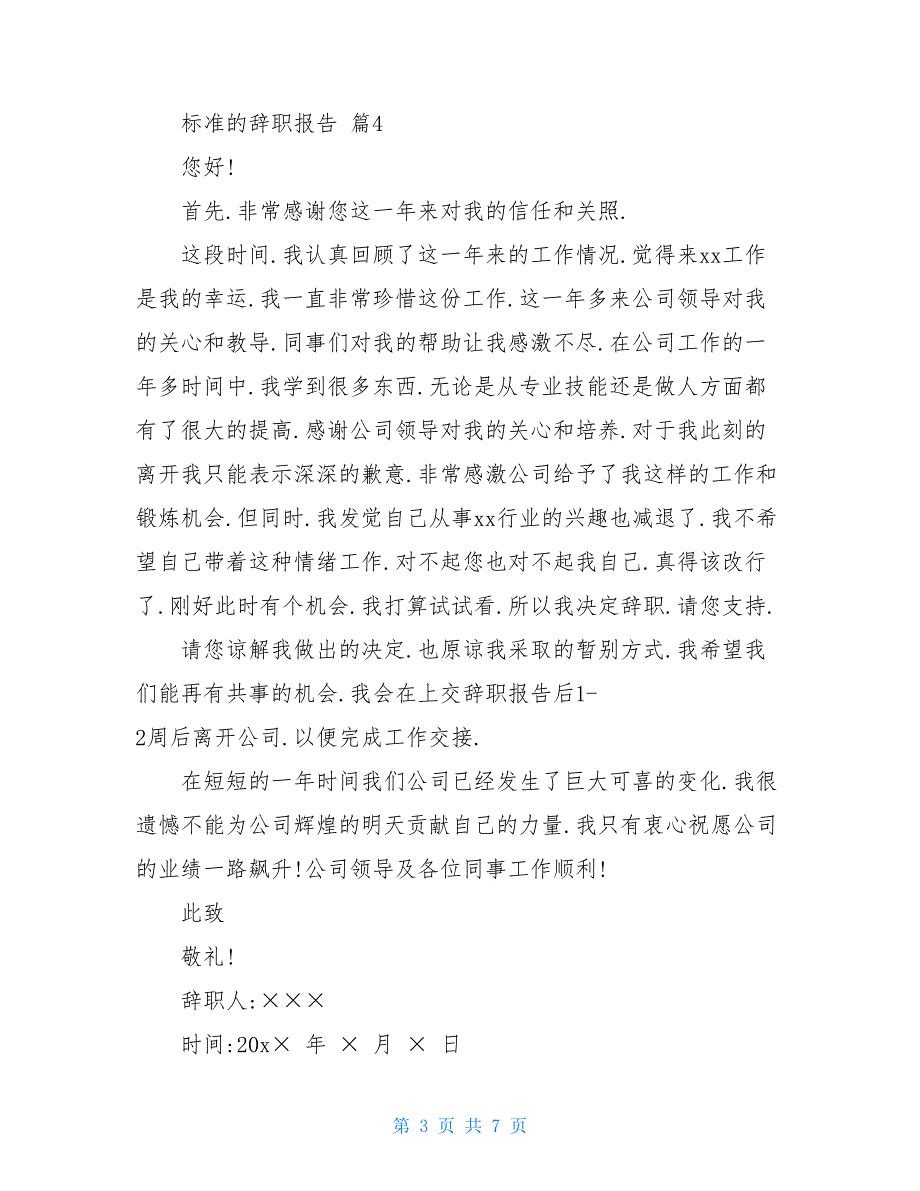 标准的辞职报告 篇4
您好!
首先.非常感谢您这一年来对我的信任和关照.
这段时间.我认真回顾了这一年来的工作情况.觉得来xx工作
是我的幸运.我一直非常珍惜这份工作.这一年多来公司领导对我
的关心和教导.同事们对我的帮助让我感激不尽.在公司工作的一
年多时间中.我学到很多东西.无论是从专业技能还是做人方面都
有了很大的提高.感谢公司领导对我的关心和培养.对于我此刻的
离开我只能表示深深的歉意.非常感激公司给予了我这样的工作和
锻炼机会.但同时.我发觉自己从事xx行业的兴趣也减退了.我不希
望自己带着这种情绪工作.对不起您也对不起我自己.真得该改行
了.刚好此时有个机会.我打算试试看.所以我决定辞职.请您支持.
请您谅解我做出的决定.也原谅我采取的暂别方式.我希望我
们能再有共事的机会.我会在上交辞职报告后1-
2周后离开公司.以便完成工作交接.
在短短的一年时间我们公司已经发生了巨大可喜的变化.我很
遗憾不能为公司辉煌的明天贡献自己的力量.我只有衷心祝愿公司
的业绩一路飙升!公司领导及各位同事工作顺利!
此致
敬礼!
辞职人:×××
时间:20x× 年 × 月 × 日
第 3 页 共 7 页